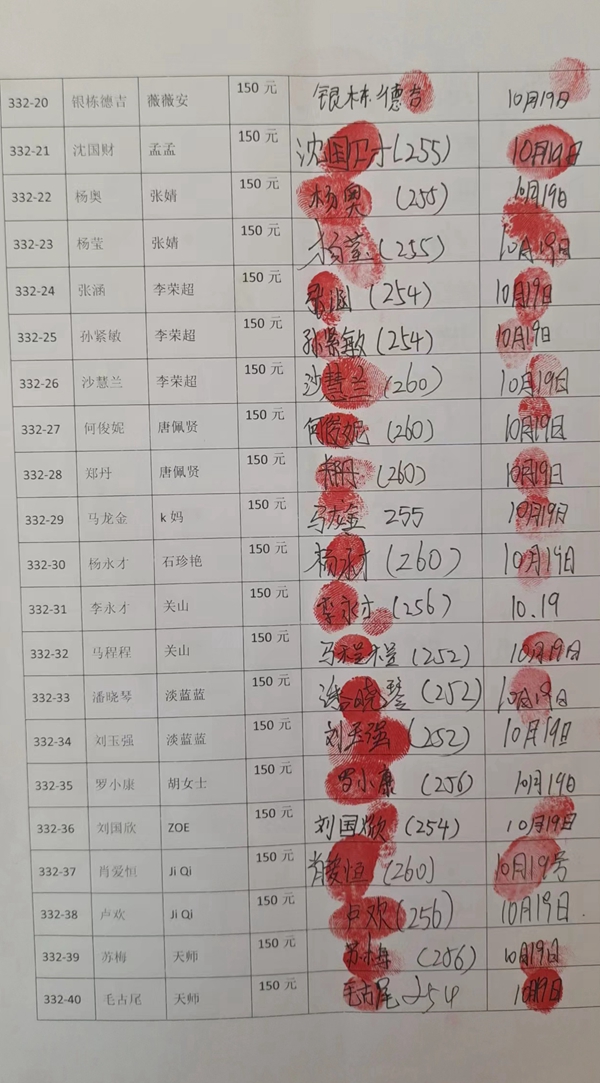 332-20 银栋德吉 薇薇安 150 元 银栋德吉 10月19日
332-21 沈国财 孟孟 150 元 沈国财(255) 10月19日
332-22 杨奥 张婧 150 元 杨奥 (255) 10月19日
332-23 杨莹 张婧 150 元 杨莹(255) 10月19日
332-24 张涵 李荣超 150 元 张涵(254) 10月19日
332-25 孙紧敏 李荣超 150 元 孙紧敏(254) 10月19日
332-26 沙慧兰 李荣超 150 元 沙慧兰(260) 10月19日
332-27 何俊妮 唐佩贤 150 元 何俊妮(260) 10月19日
332-28 郑丹 唐佩贤 150 元 郑丹(260) 10月19日
332-29 马龙金 k 妈 150 元 马龙金 255 10月19日
332-30 杨永才 石珍艳 150 元 杨永才(260) 10月19日
332-31 李永才 关山 150 元 李永才(256) 10.19
332-32 马程程 关山 150 元 马程程(252) 10月19日
332-33 潘晓琴 淡蓝蓝 150 元 潘晓琴(252) 10月19日
332-34 刘玉强 淡蓝蓝 150 元 刘玉强(252) 10月19日
332-35 罗小康 胡女士 150 元 罗小康 (256) 10月19日
332-36 刘国欣 ZOE 150 元 刘国欣(254) 10月19日
332-37 肖爱恒 Ji Qi 150 元 肖爱恒(260) 10月19号
332-38 卢欢 Ji Qi 150 元 卢欢(256) 10月19日
332-39 苏梅 天师 150 元 苏梅 (256) 10月19日
332-40 毛古尾 天师 150 元 毛古尾 254 10月9日